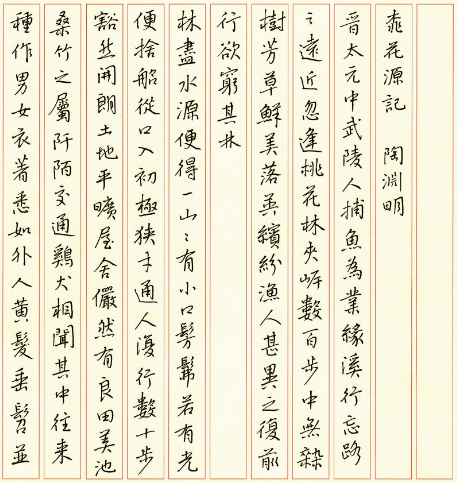 桃花源記　陶淵明
晉太元中武陵人捕魚為業緣溪行忘路
之遠近忽逢桃花林夾岸數百步中無雜
樹芳草鮮美落英繽紛漁人甚異之復前
行欲窮其林
林盡水源便得一山〻有小口髣髴若有光
便捨船從口入初極狹才通人復行數十步
豁然開朗土地平曠屋舍儼然有良田美池
桑竹之屬阡陌交通鷄犬相聞其中往来
種作男女衣著悉如外人黄髮垂髫並